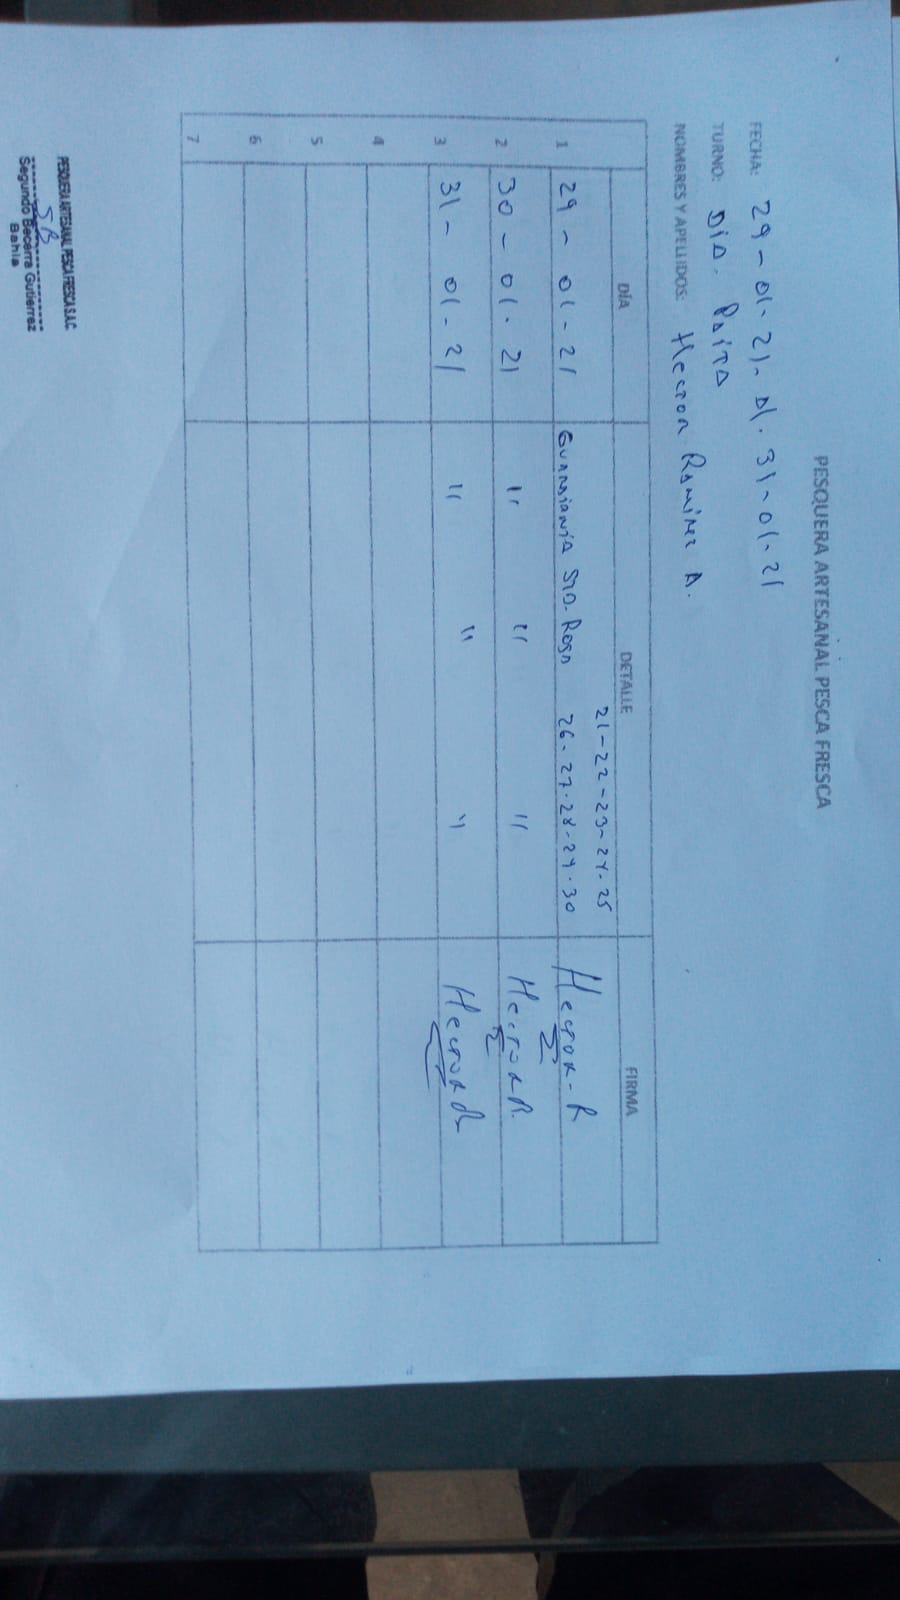 PESQUERA ARTESANAL PESCA FRESCA
FECHA: 29-01-21. Al. 31-01-21
TURNO: DIA. PAITA
NOMBRES Y APELLIDOS: Hector Ramirez A.
DÍA DETALLE FIRMA
21-22-23-24-25
1 29-01-21 Guardiania Sta. Rosa 26.27.28-29.30 Hector-R
2 30-01.21 " " " Hector R.
3 31-01-21 " " " Hector
4
5
6
7
PESQUERA ARTESANAL PESCA FRESCA S.A.C.
SB
Segundo Becerra Gutierrez
Bahía